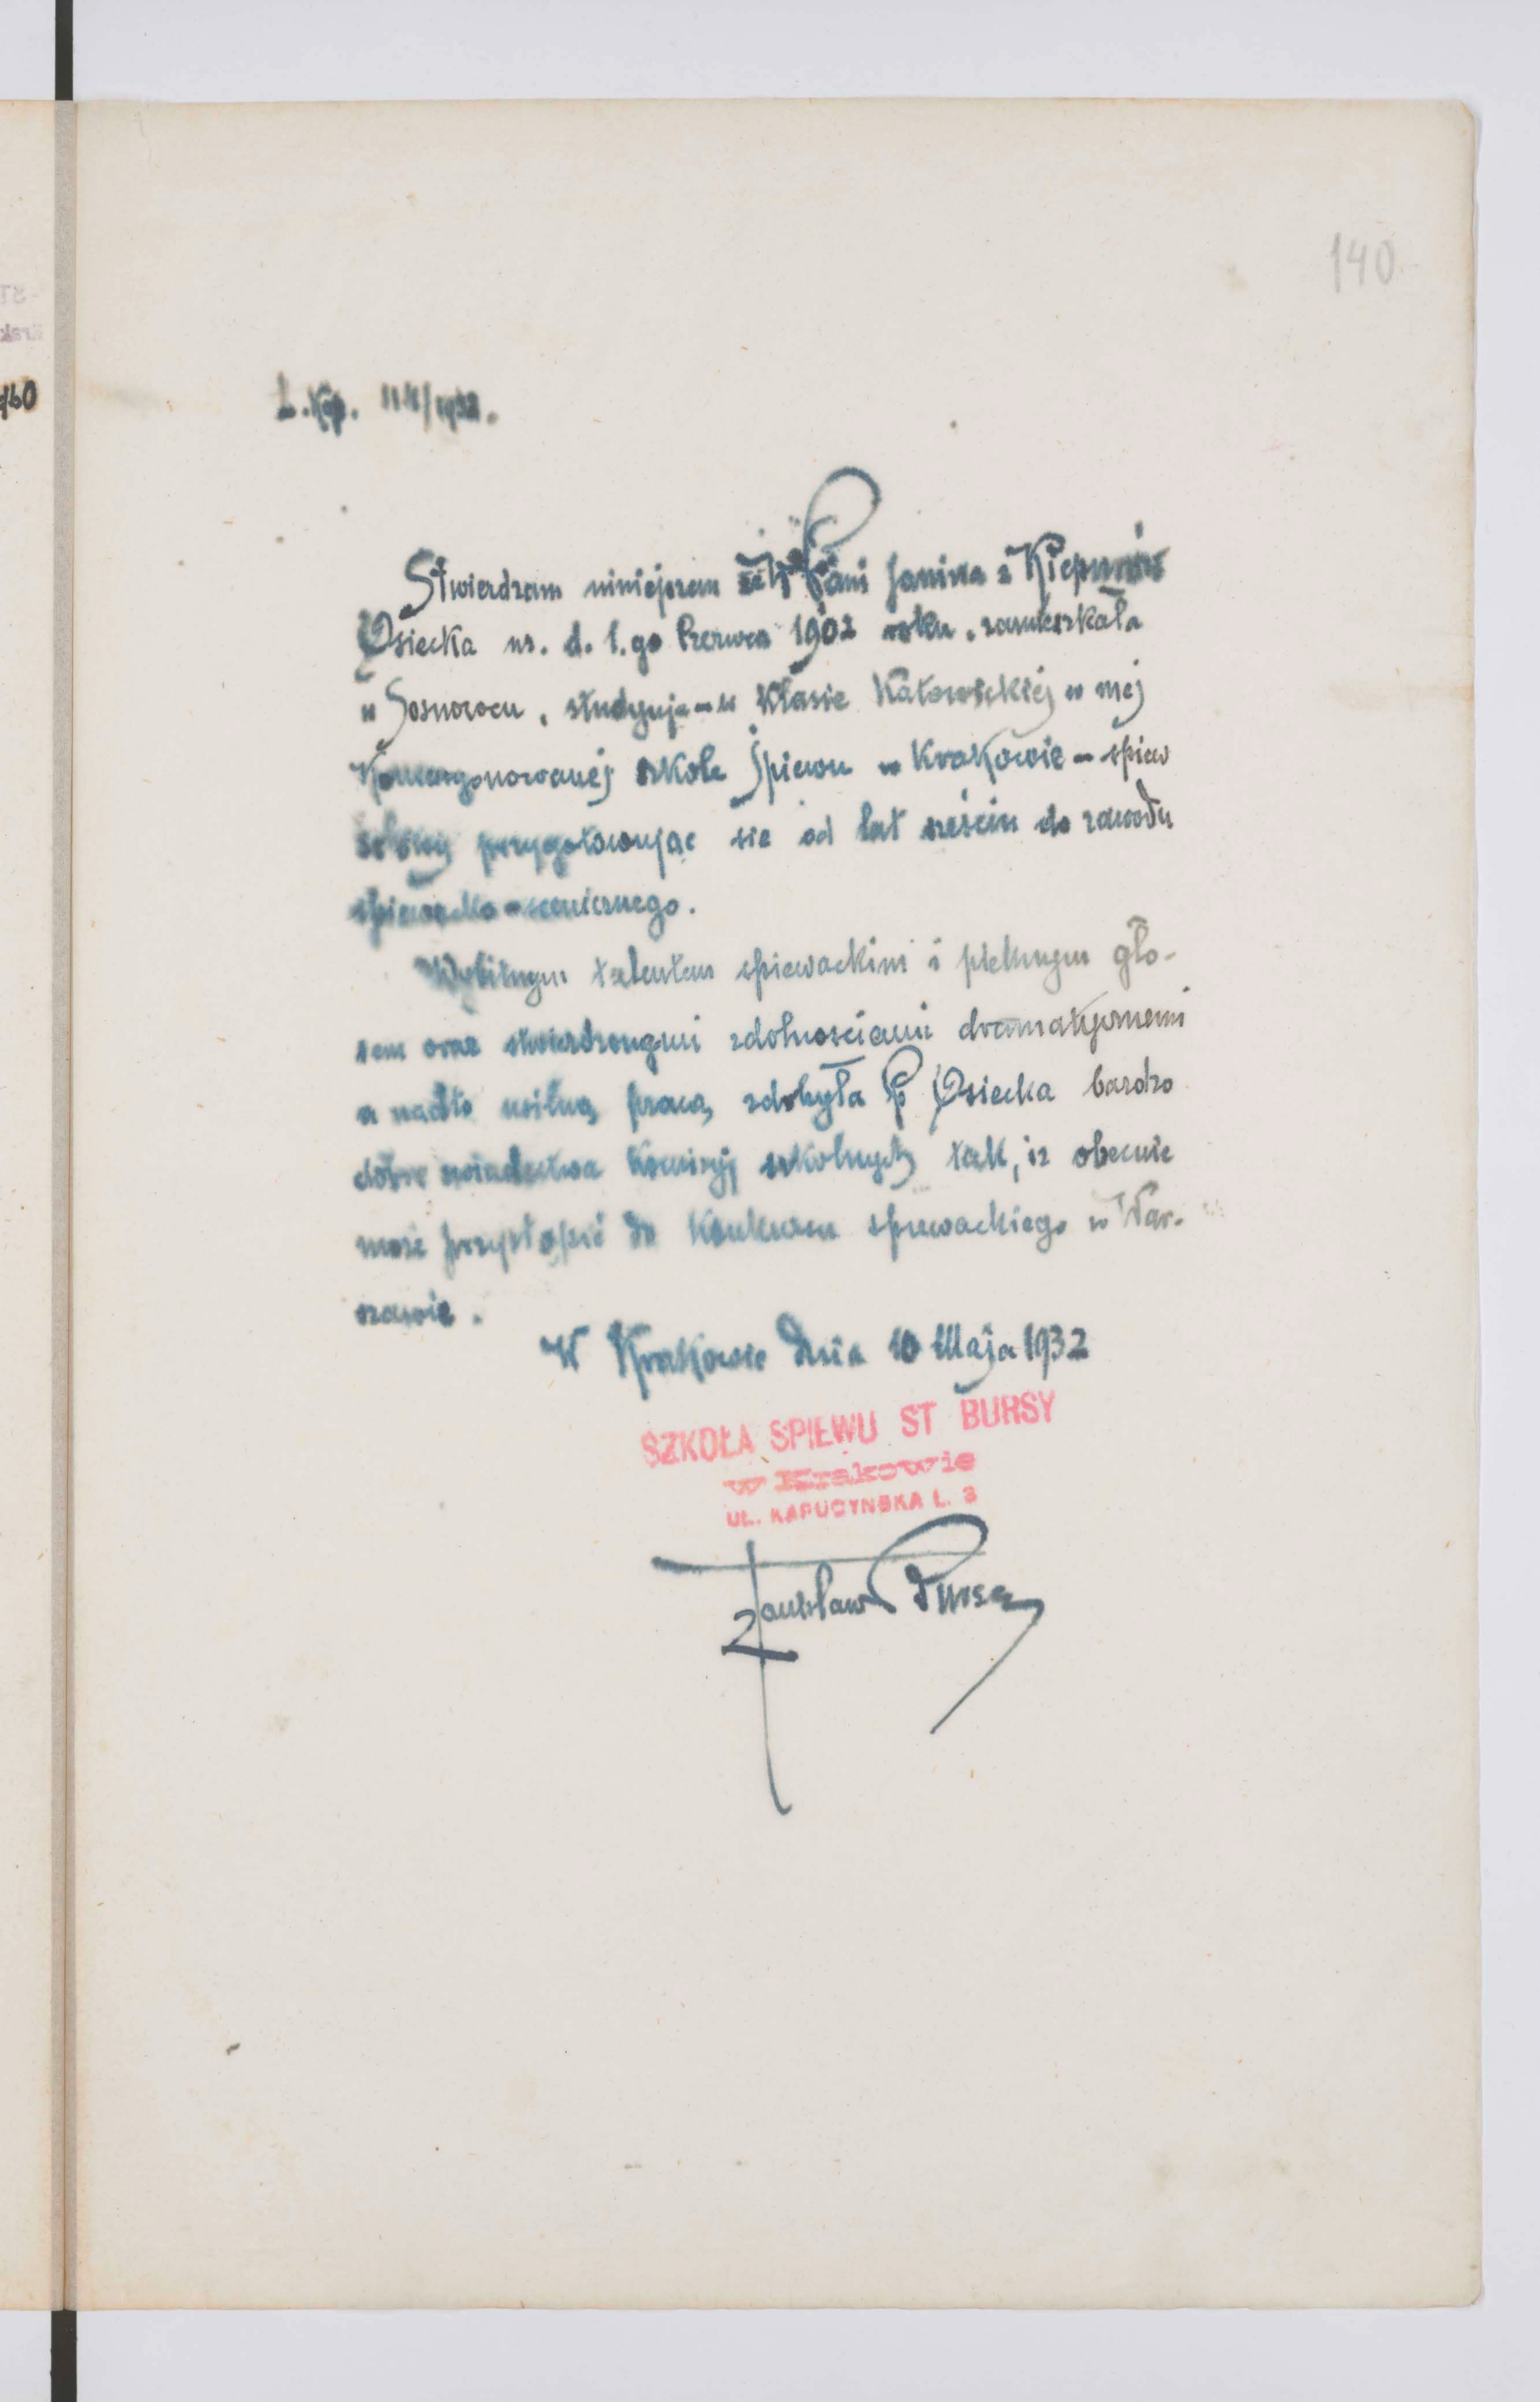 140
160
L. Kop. 114/1932.
Stwierdzam niniejszem że Pani Janina z Kiepurów
Osiecka ur. d. 1.go Czerwca 1902 roku, zamieszkała
w Sosnowcu, studyuje - w klasie Katowickiej w mej
Koncesyonowanej szkole śpiewu w Krakowie - śpiew
solowy przygotowując sie od lat sześciu do zawodu
śpiewacko-scenicznego.
Wybitnym talentem śpiewackim i pieknym gło-
sem oraz stwierdzonymi zdolnościami dramatycznemi
a nadto usilną pracą zdobyła P Osiecka bardzo
dobre swiadectwa komisyj szkolnych tak, iż obecnie
może przystąpić do Konkursu spiewackiego w War-
szawie.
W Krakowie dnia 10 Maja 1932
SZKOŁA SPIEWU ST BURSY
w Krakowie
UL. KAPUCYNSKA L. 3
Stanisław Bursa